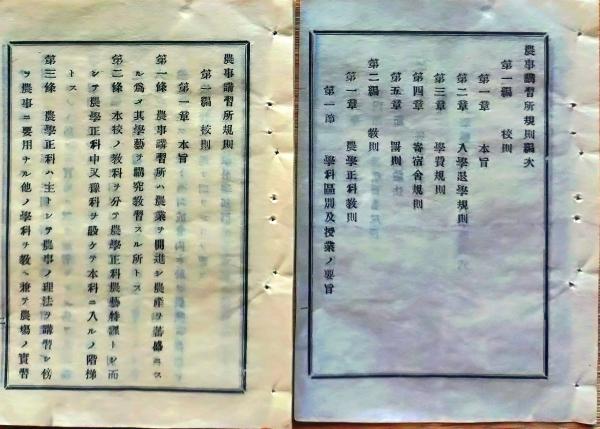 農事講習所規則編次
第一編 校則
第一章 本旨
第二章 入學退學規則
第三章 學費規則
第四章 寄宿舍規則
第五章 罰則
第二編 敎則
第一章 農學正科敎則
第一節 學科區別及授業ノ要旨
農事講習所規則
第一編 校則
第一章 本旨
第一條 農事講習所ハ農業ヲ開進シ農產ヲ蕃盛ニス
ル爲メ其學藝ヲ講究敎習スル所トス
第二條 本校ノ敎科ヲ分テ農學正科農藝特課トシ而
シテ農學正科中又豫科ヲ設ケテ本科ニ入ルノ階梯
トス
第三條 農學正科ハ主トシテ農事ノ理法ヲ講習シ傍
ラ農事ニ要用ナル他ノ學科ヲ敎ヘ兼テ農場ノ實習